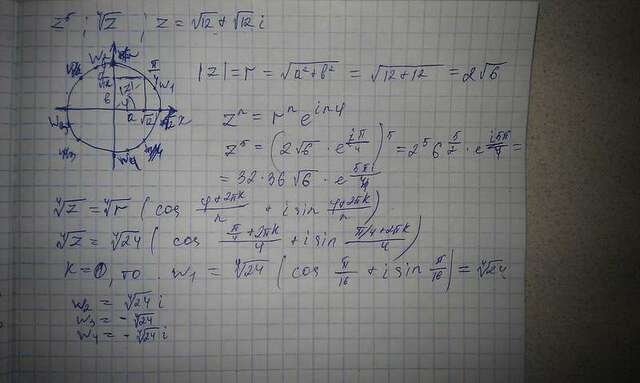 z⁵ ; ∜z ; z = √12 + √12 i
|z| = r = √(a²+b²) = √(12+12) = 2√6
zⁿ = rⁿ e^(inφ)
z⁵ = (2√6 · e^(iπ/4))⁵ = 2⁵ 6^(5/2) · e^(i5π/4) =
= 32·36√6 · e^(5πi/4)
ⁿ√z = ⁿ√r (cos (φ+2πk)/n + i sin (φ+2πk)/n)
∜z = ∜24 (cos (π/4+2πk)/4 + i sin (π/4+2πk)/4)
k=0, то w₁ = ∜24 (cos π/16 + i sin π/16) = ∜24
w₂ = ∜24 i
w₃ = -∜24
w₄ = -∜24 i